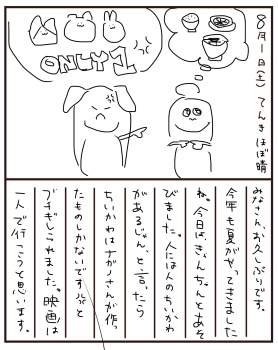 8月1日(土) てんきほぼ晴
ONLY1
みなさん、お久しぶりです。
今年も夏がやってきました
ね。今日は、ぎんちゃんとあそ
びました。人には人のちいかわ
があるじゃん、と言ったら
ちいかわはナガノさんが作っ
たものしかないです💢と
ブチギレられました。映画は
一人で行こうと思います。